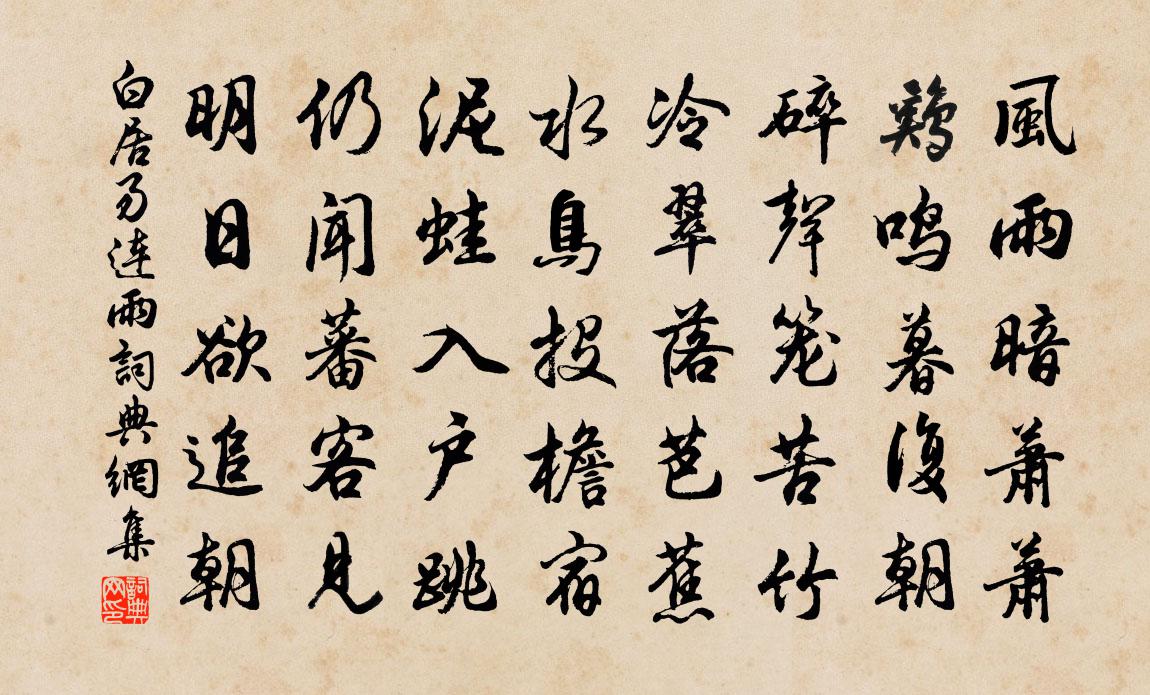 風雨暗蕭蕭
鷄鳴暮復朝
碎聲笼苦竹
冷翠落芭蕉
水鳥投檐宿
泥蛙入户跳
仍聞蕃客見
明日欲追朝
白居易連雨詞典網集
詞典网印